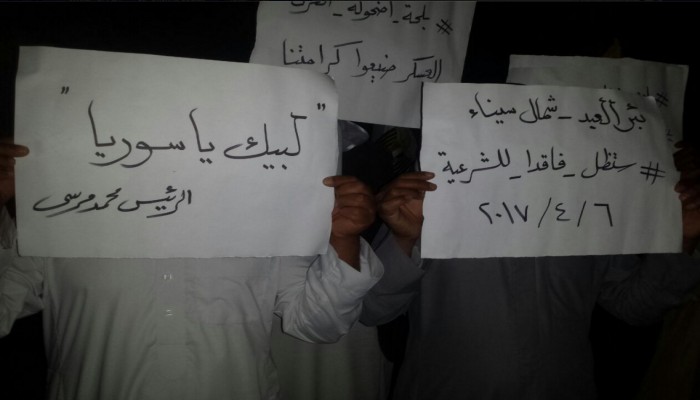 "لبيك يا سوريا"
الرئيس محمد مرسى
العسكر ضيعوا كرامتنا
بئر العبد - شمال سيناء
#ستظل_فاقدا_للشرعية
٢٠١٧/٤/٦